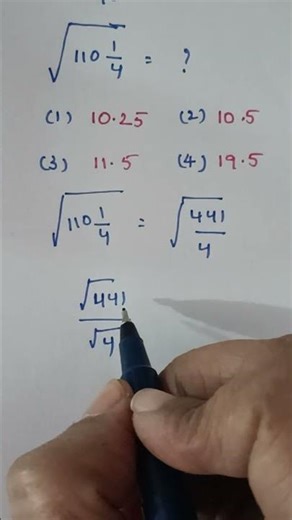 √110 1/4 = ?
(1) 10.25 (2) 10.5
(3) 11.5 (4) 19.5
√110 1/4 = √441/4
√441/√4